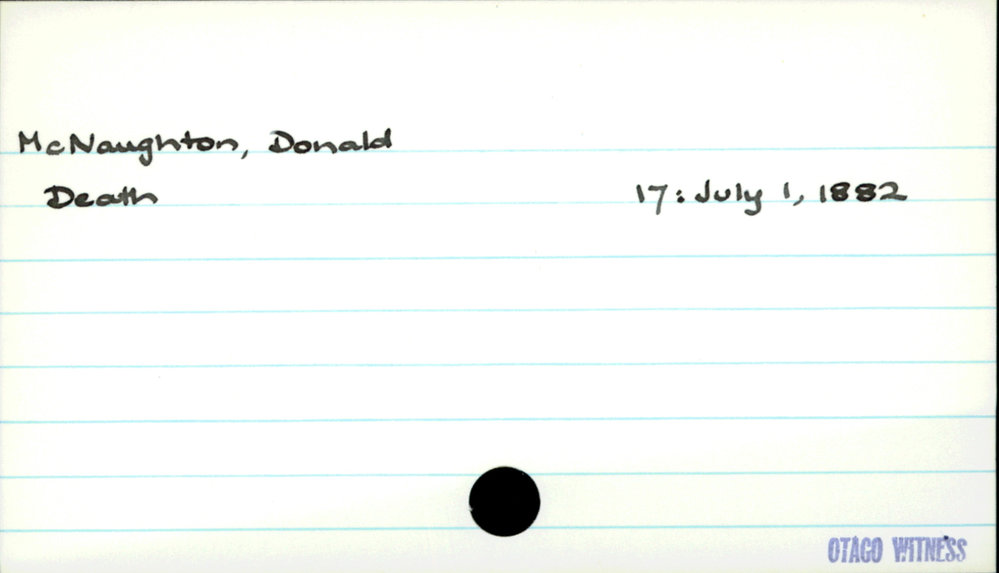 McNaughton, Donald
Death 17: July 1, 1882
OTAGO WITNESS